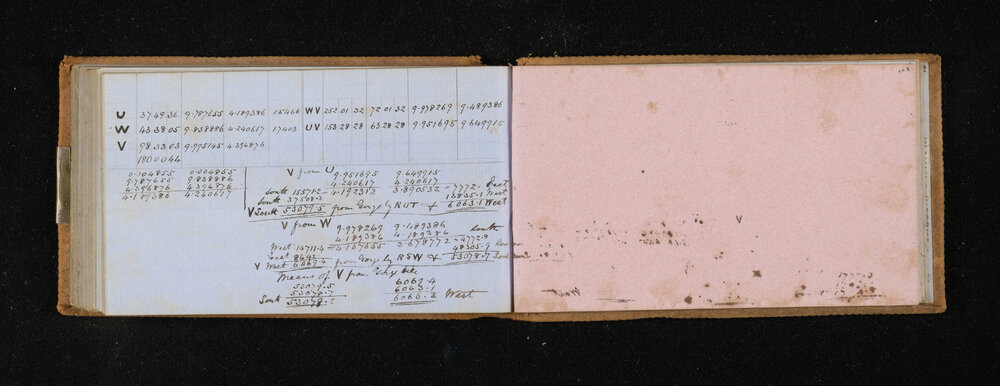 U 37 49 36 9.787655 4.189386 15466 WV 252 01 32 72 01 32 9.978269 9.489386
W 43 38 05 9.838886 4.240617 17403 UV 153 28 28 63 28 28 9.951695 9.649915
V 98 33 03 9.995145 4.396876
180 00 44
0.004855 0.004855 V from U 9.951695 9.649915
9.787655 9.838886 4.240617 4.240617
4.396876 4.396876 South 15571.2 = 4.192312 3.890532 = 7772. East
4.189386 4.240617 South 37508.3 13835.1 West
V South 53079.5 from Gorge by RUT & 6063.1 West
V from W 9.978269 9.489386
4.189386 4.189386 South
West 14711.4 = 4.167655 3.678772 = 4772.8
East 8642 48305.9
V West 6069.4 from Gorge by RSW & 53078.7
Means of V from
53079.5 6069.4
53078.7 6063.1
South 6066.2 West